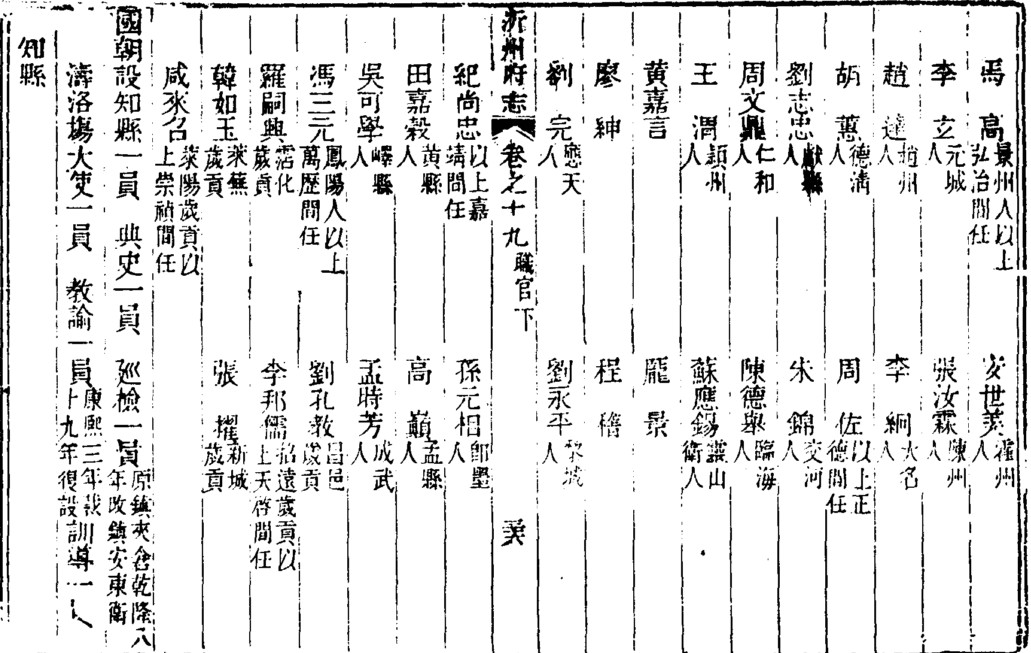 馬高 景州人以上弘治間任 安世美 霍州人
李立 元城人 張汝霖 陳州人
趙達 趙州人 李絅 大名人
胡蕙 德清人 周佐 以上正德間任
劉志忠 獻縣人 朱錦 交河人
周文鼎 仁和人 陳德輿 臨海人
王淵 潁州人 蘇應錫 靈山衛人
黃嘉言 龐景
廖紳 程
劉完 應天人 劉永平 黎城人
沂州府志 卷之十九 職官下
紀尚忠 以上嘉靖間任 孫元相 即墨人
田嘉穀 黃縣人 高巔 孟縣人
吳可學 嶧縣人 孟時芳 成武人
馮三元 鳳陽人以上萬歷間任 劉孔敎 昌邑歲貢
羅嗣興 霑化歲貢 李邦儒 招遠歲貢以上天啓間任
韓如玉 萊蕪歲貢 張耀 新城歲貢
咸來召 萊陽歲貢以上崇禎間任
國朝設知縣一員 典史一員 廵檢一員 原鎮夾倉乾隆八年改鎮安東衛
濤洛塲大使一員 教諭一員 康熙三年裁十九年復設 訓導一
知縣